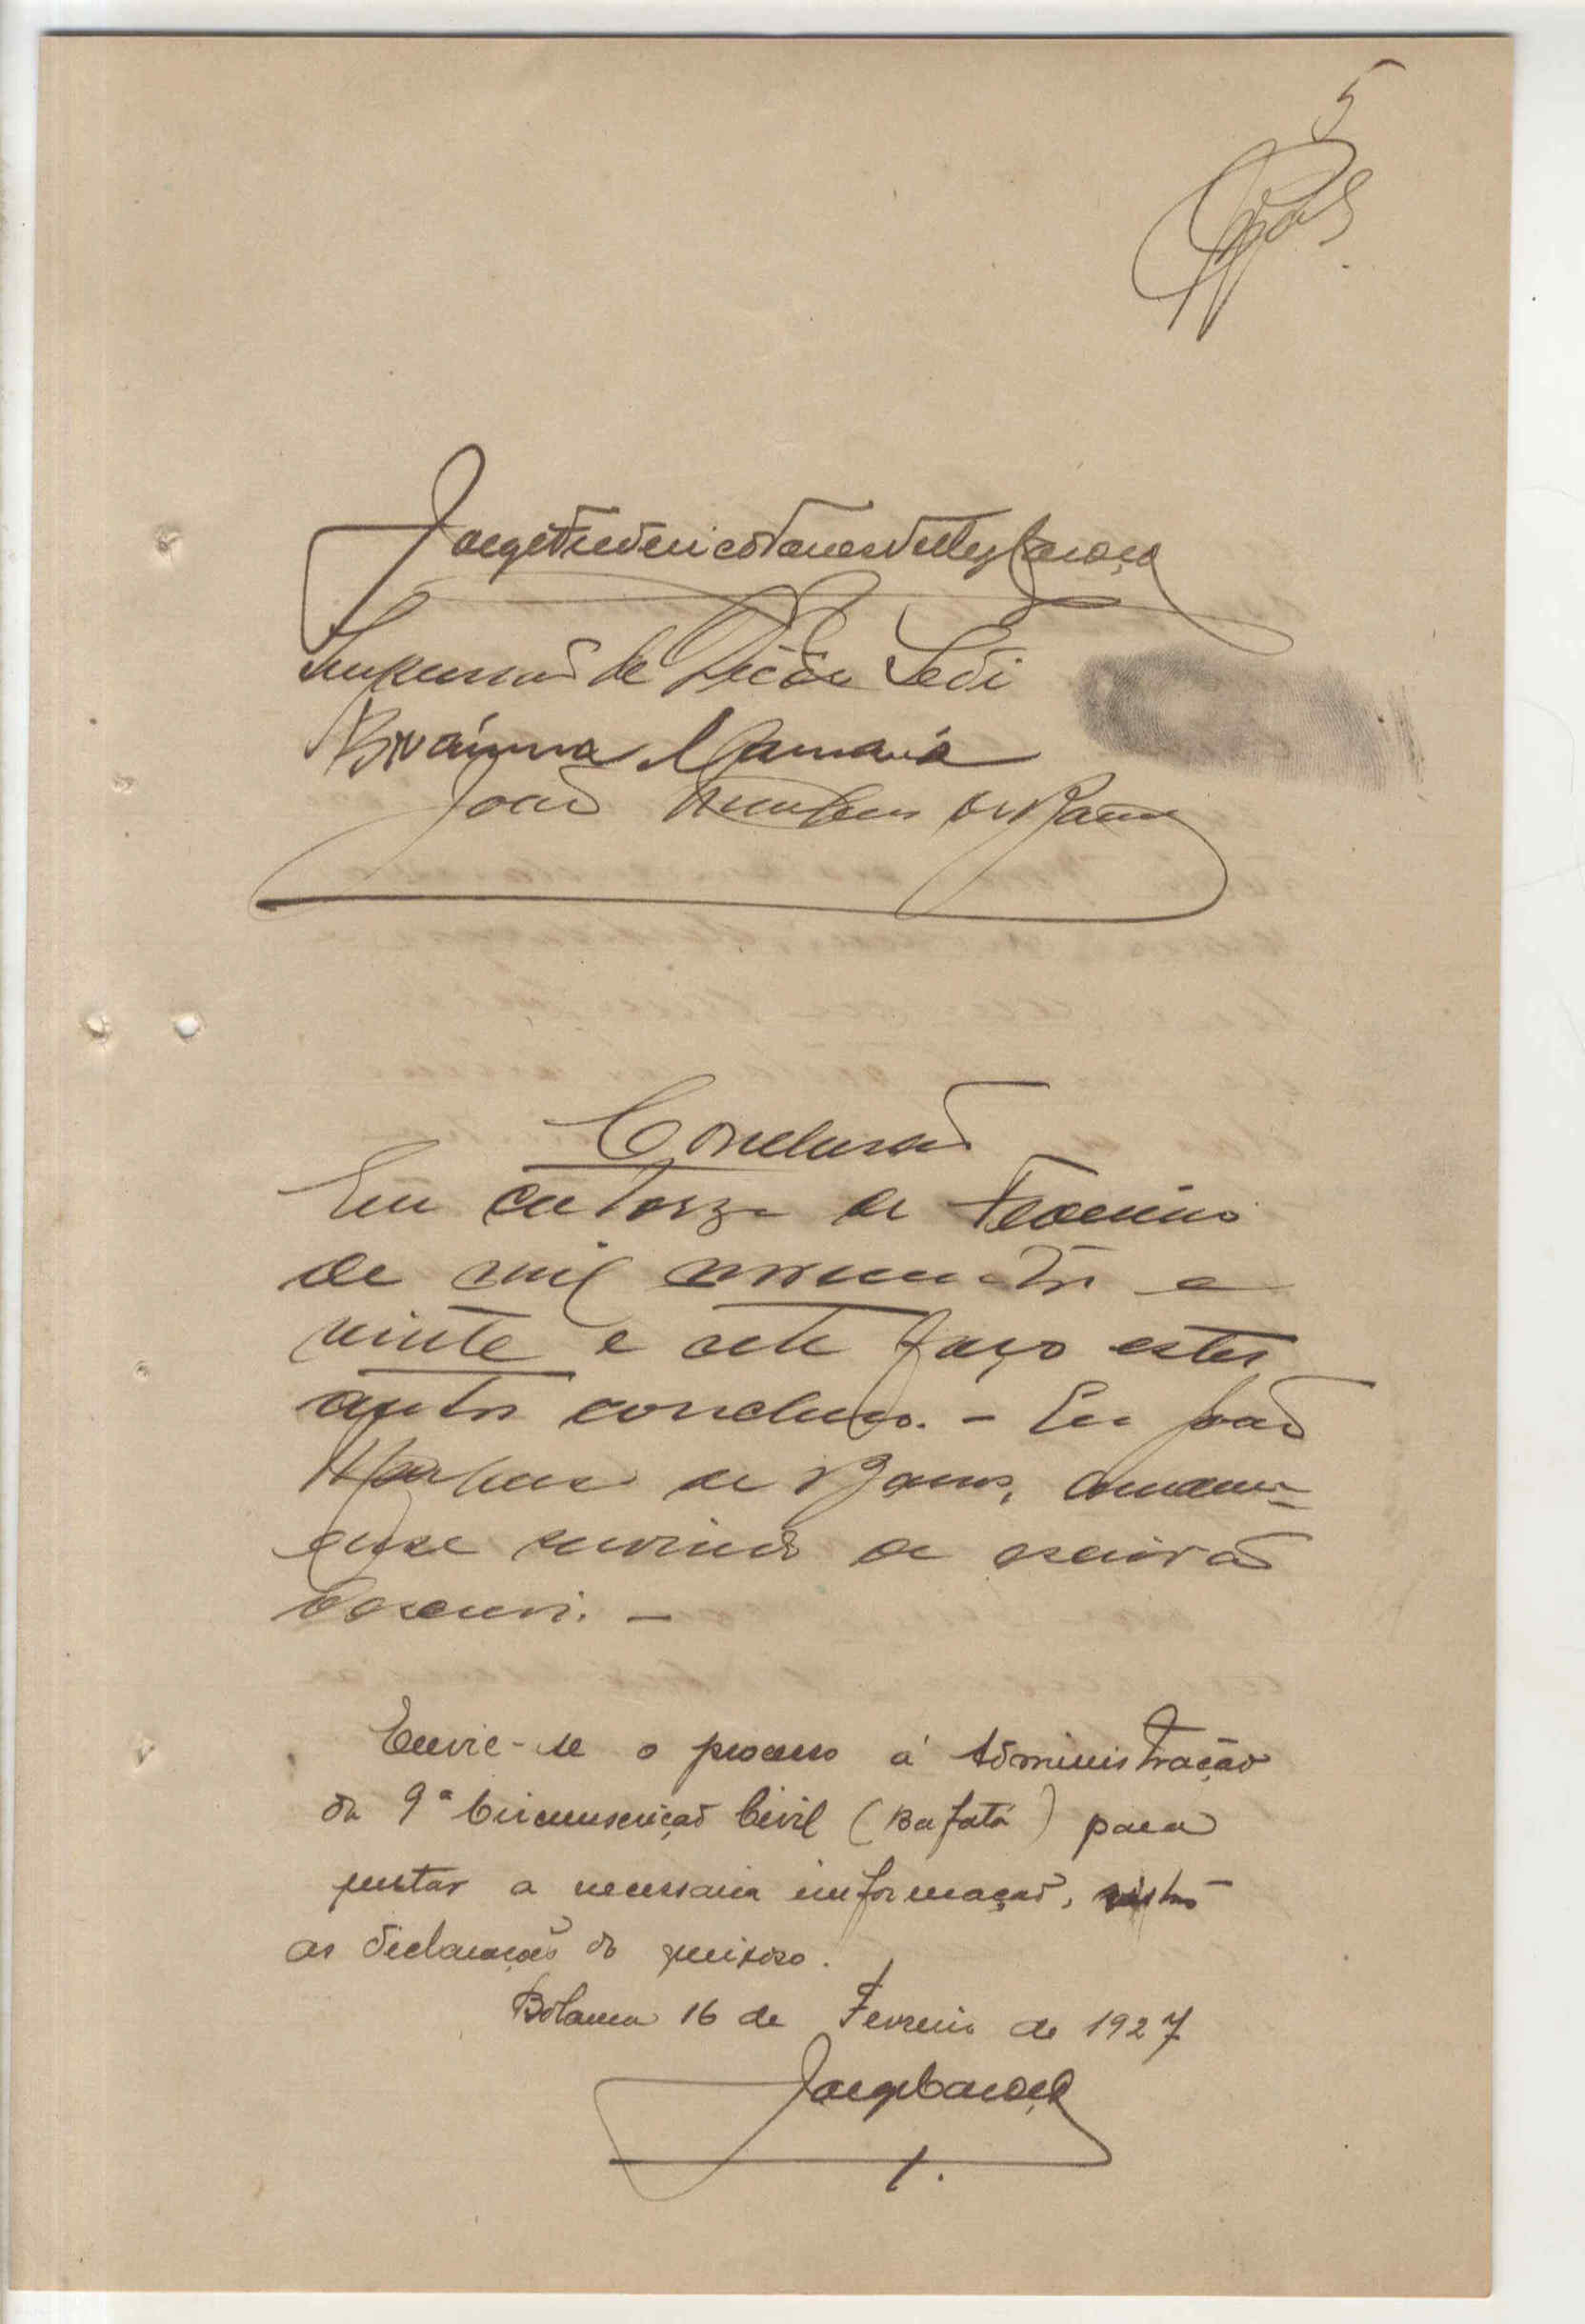 5
Jorge Frederico Torres Vellez Caroço
Impressão de Sedi
Braima Mamadú
João de Barros
Conclusão
Em catorze de Fevereiro
de mil novecentos e
vinte e sete faço estes
autos conclusos. - Eu João
de Barros, amanu-
ense servindo de escrivão
o escrevi. -
Envie-se o processo á Administração
da 9ª Circunscrição Civil (Bafatá) para
prestar a necessaria informação, visto
as declarações do queixoso.
Bolama 16 de Fevereiro de 1927
Jorge Caroço